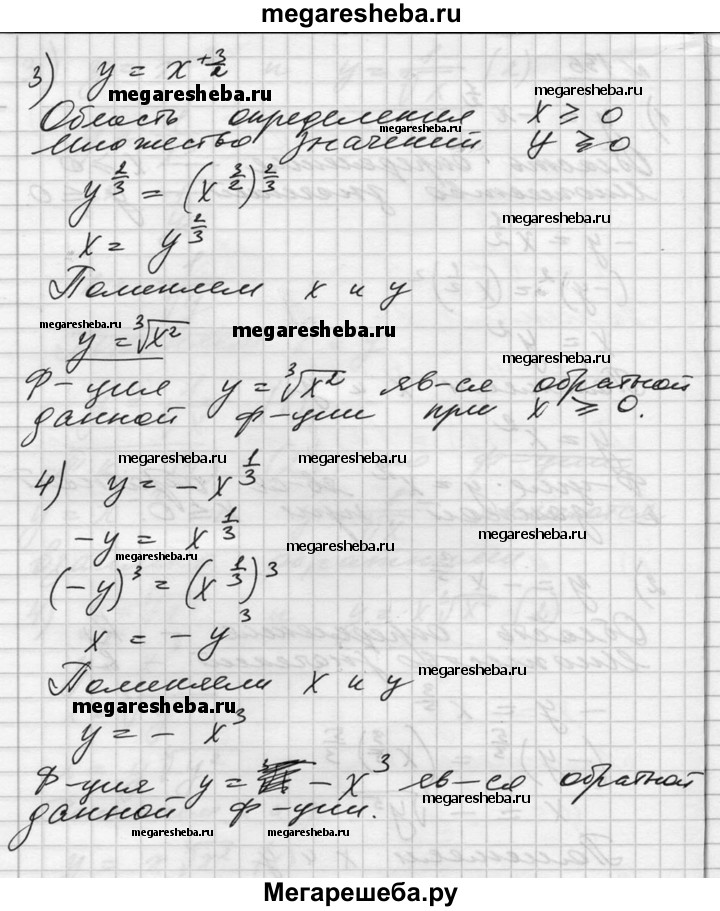 megaresheba.ru
3) y = x^{+3/2}
megaresheba.ru
Область определения x ⩾ 0
megaresheba.ru
Множество значений y ⩾ 0
y^{2/3} = (x^{3/2})^{2/3}
megaresheba.ru
x = y^{2/3}
Поменяем x и y
megaresheba.ru
megaresheba.ru
y = ∛x²
megaresheba.ru
Ф-ция y = ∛x² яв-ся обратной
данной ф-ции при x ⩾ 0.
megaresheba.ru megaresheba.ru
4) y = - x^{1/3}
-y = x^{1/3}
megaresheba.ru
megaresheba.ru
megaresheba.ru
(-y)^3 = (x^{1/3})^3
x = - y^3
megaresheba.ru
Поменяем x и y
megaresheba.ru
y = - x^3
Ф-ция y = - x^3 яв-ся обратной
megaresheba.ru
данной ф-ции.
megaresheba.ru megaresheba.ru
Мегарешеба.ру